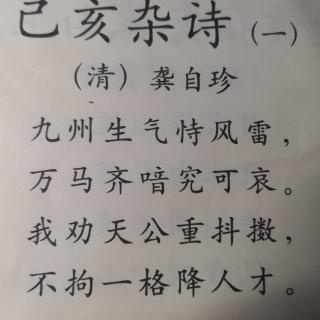 己亥杂诗（一）
（清）龚自珍
九州生气恃风雷，
万马齐喑究可哀。
我劝天公重抖擞，
不拘一格降人才。